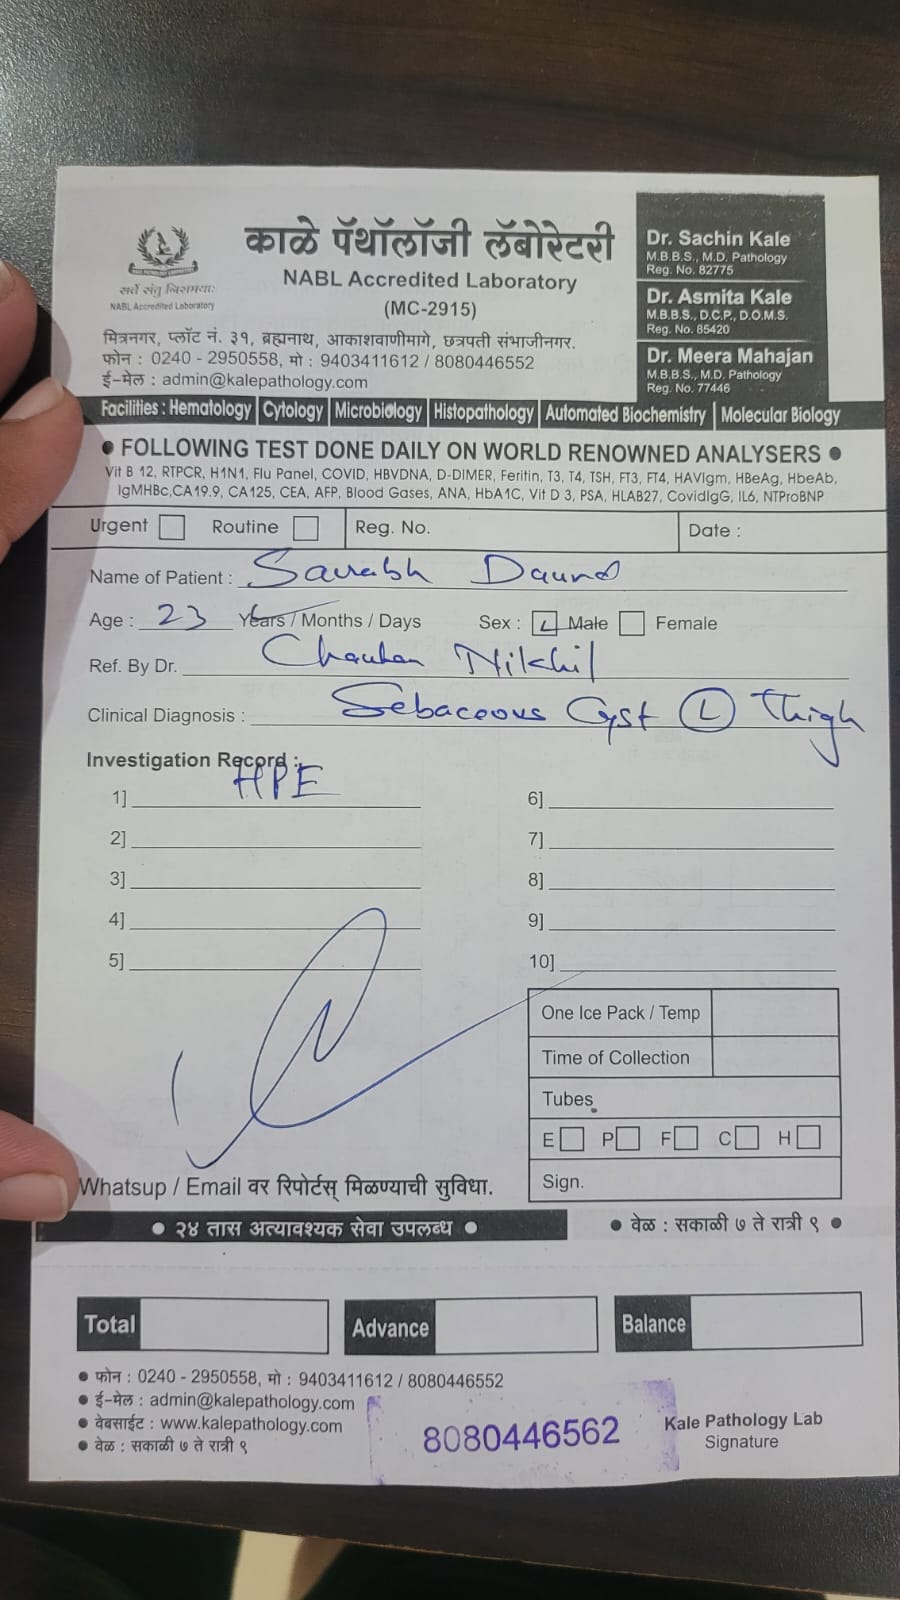 काळे पॅथॉलॉजी लॅबोरेटरी
NABL Accredited Laboratory
(MC-2915)
KALE PATHOLOGY LABORATORY
सर्वे संतु निरामयाः
NABL Accredited Laboratory
मित्रनगर, प्लॉट नं. ३१, ब्रह्मनाथ, आकाशवाणीमागे, छत्रपती संभाजीनगर.
फोन : 0240 - 2950558, मो : 9403411612 / 8080446552
ई-मेल : admin@kalepathology.com
Dr. Sachin Kale
M.B.B.S., M.D. Pathology
Reg. No. 82775
Dr. Asmita Kale
M.B.B.S., D.C.P., D.O.M.S.
Reg. No. 85420
Dr. Meera Mahajan
M.B.B.S., M.D. Pathology
Reg. No. 77446
Facilities : Hematology | Cytology | Microbiology | Histopathology | Automated Biochemistry | Molecular Biology
• FOLLOWING TEST DONE DAILY ON WORLD RENOWNED ANALYSERS •
Vit B 12, RTPCR, H1N1, Flu Panel, COVID, HBVDNA, D-DIMER, Feritin, T3, T4, TSH, FT3, FT4, HAVIgm, HBeAg, HbeAb,
IgMHBc,CA19.9, CA125, CEA, AFP, Blood Gases, ANA, HbA1C, Vit D 3, PSA, HLAB27, CovidIgG, IL6, NTProBNP
Urgent Routine Reg. No. Date :
Name of Patient : Saurabh Daund
Age : 23 Years / Months / Days Sex : Male Female
Ref. By Dr. Chauhan Nikhil
Clinical Diagnosis : Sebaceous Cyst (L) Thigh
Investigation Record :
1] HPE
2]
3]
4]
5]
6]
7]
8]
9]
10]
One Ice Pack / Temp
Time of Collection
Tubes
E P F C H
Sign.
Whatsup / Email वर रिपोर्टस् मिळण्याची सुविधा.
• २४ तास अत्यावश्यक सेवा उपलब्ध •
• वेळ : सकाळी ७ ते रात्री ९ •
Total Advance Balance
• फोन : 0240 - 2950558, मो : 9403411612 / 8080446552
• ई-मेल : admin@kalepathology.com
• वेबसाईट : www.kalepathology.com
• वेळ : सकाळी ७ ते रात्री ९
8080446562
Kale Pathology Lab
Signature